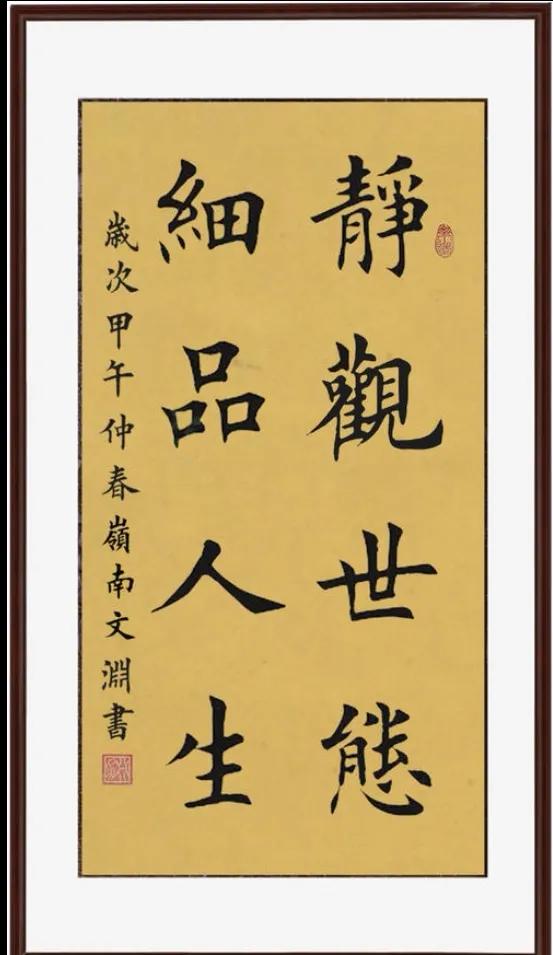 靜觀世態
細品人生
歲次甲午仲春嶺南文淵書